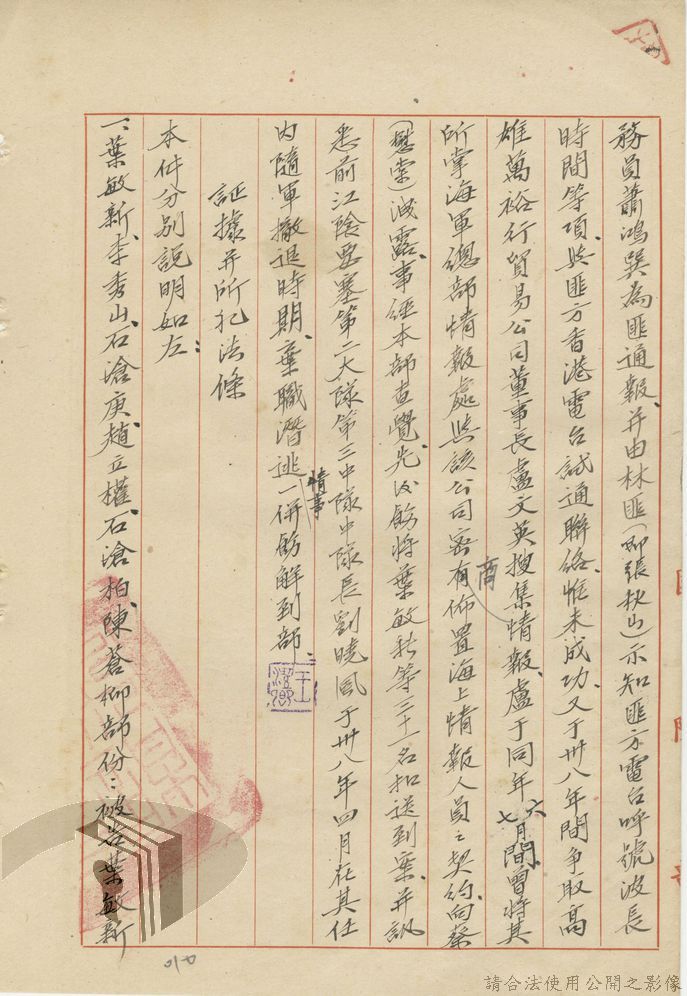 務員蕭鴻巽為匪通報、并由林匪(即張秋山)示知匪方電台呼號波長
時間等項、與匪方香港電台試通聯絡、惟未成功、又于卅八年間爭取高
雄萬裕行貿易公司董事長盧文英搜集情報、盧于同年六七月間、曾將其
所掌海軍總部情報處與該公司密商有佈置海上情報人員之契約、向蔡
(慰棠)洩露、事經本部查覺、先後飭將葉敏新等三十一名扣送到案、并訊
悉前江陰要塞第二大隊第三中隊中隊長劉曉風于卅八年四月在其任
內隨軍撤退時期、棄職潛逃情事一併飭解到部、
証據并所犯法條
本件分別說明如左:
一、葉敏新、李秀山、石滄庚、趙立權、石滄柏、陳蒼柳部份:被告葉敏新
請合法使用公開之影像